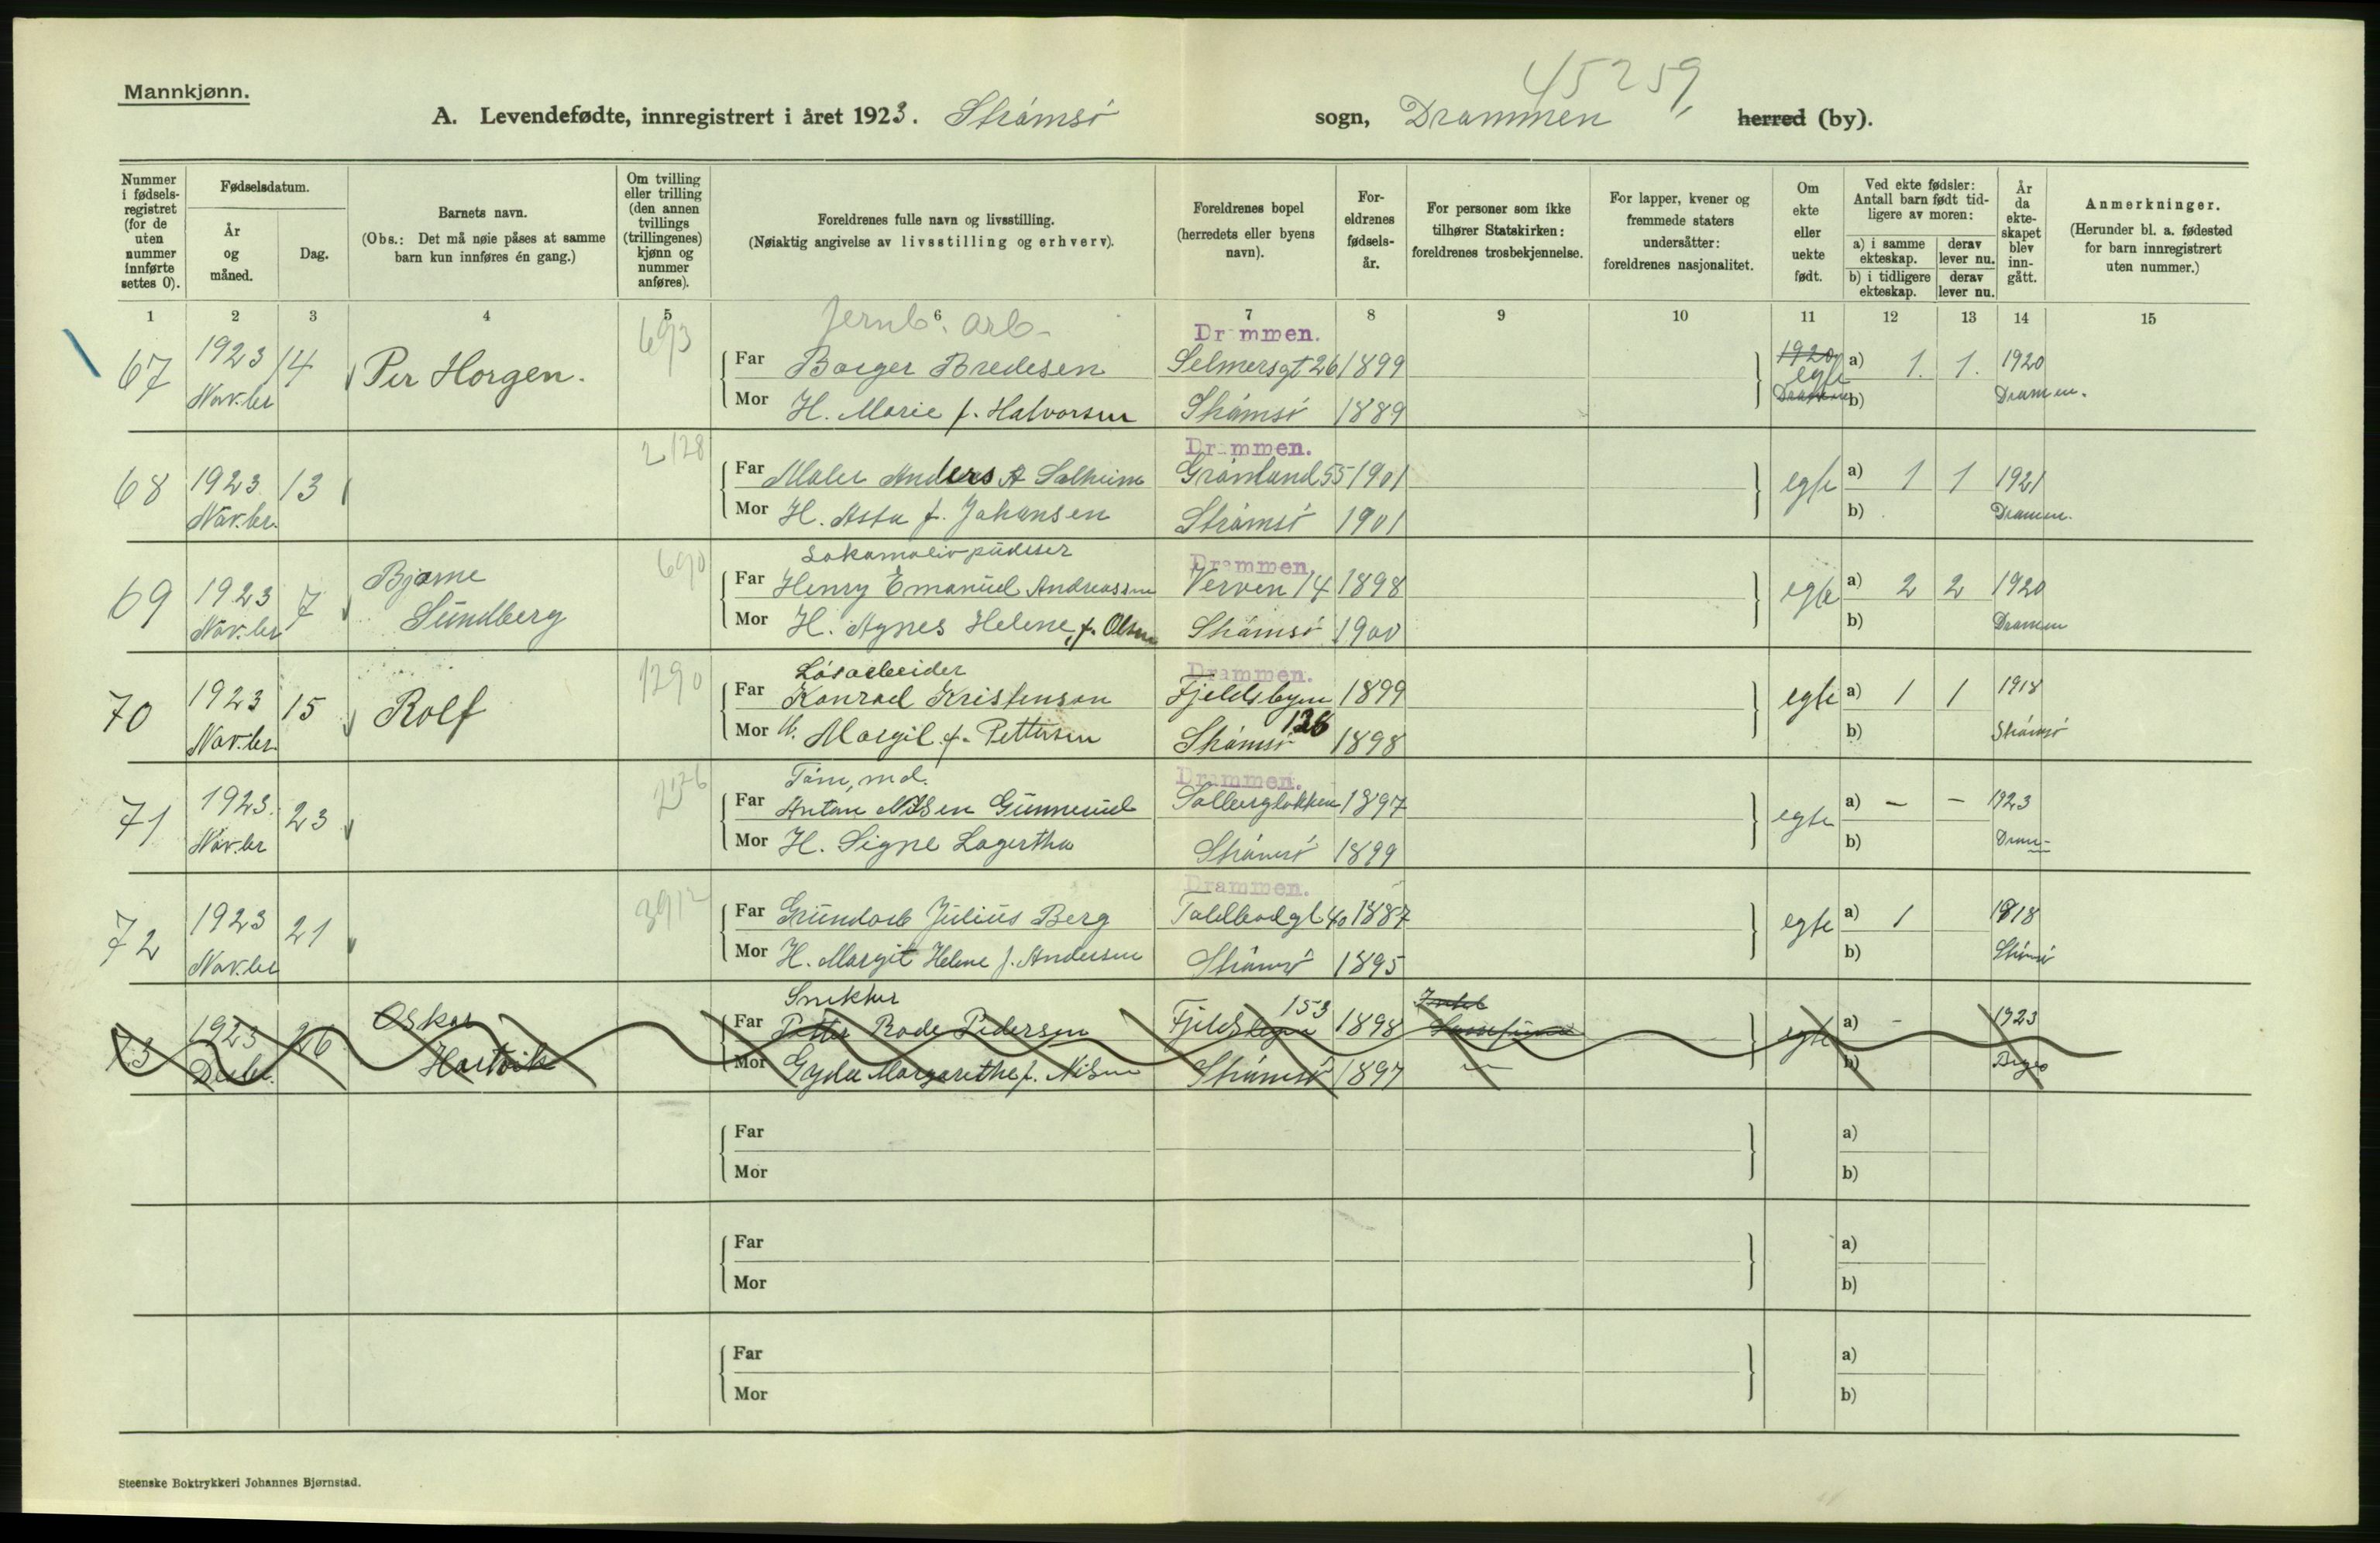 45259
Mannkjønn.
A. Levendefødte, innregistrert i året 1923. Strømsø sogn, Drammen herred (by).
Nummer i fødsels-registret (for de uten nummer innførte settes 0).
Fødselsdatum.
År og måned.
Dag.
Barnets navn.
(Obs.: Det må nøie påses at samme barn kun innføres én gang.)
Om tvilling eller trilling (den annen tvillings (trillingenes) kjønn og nummer anføres).
Foreldrenes fulle navn og livsstilling.
(Nøiaktig angivelse av livsstilling og erhverv).
Foreldrenes bopel (herredets eller byens navn).
For-eldrenes fødsels-år.
For personer som ikke tilhører Statskirken: foreldrenes trosbekjennelse.
For lapper, kvener og fremmede staters undersåtter: foreldrenes nasjonalitet.
Om ekte eller uekte født.
Ved ekte fødsler: Antall barn født tid-ligere av moren:
a) i samme ekteskap. derav lever nu.
b) i tidligere ekteskap. derav lever nu.
År da ekte-skapet blev inn-gått.
Anmerkninger.
(Herunder bl. a. fødested for barn innregistrert uten nummer.)
1 2 3 4 5 6 7 8 9 10 11 12 13 14 15
Jernb. arb. Drammen.
67 1923 14 Per Horgen. 693 Far Borger Bredesen Selmersgt 26 1899 1920 egte a) 1. 1. 1920
Novbr Mor H. Marie f. Halvorsen Strømsø 1889 Drammen b) Drammen.
2128 Drammen.
68 1923 13 Far Maler Anders A Solheim Grønland 55 1901 egte a) 1 1 1921
Novbr. Mor H. Asta f. Johansen Strømsø 1901 b) Drammen.
Lokomotivpudser Drammen.
69 1923 7 Bjarne 690 Far Henry Emanuel Andreassen Verven 14 1898 egte a) 2 2 1920
Novbr Sundberg Mor H. Agnes Helene, f. Olsen Strømsø 1900 b) Drammen
Løsarbeider Drammen.
70 1923 15 Rolf 1290 Far Konrad Kristensen Fjeldsbyen 1899 egte a) 1 1 1918
Novbr. Mor H. Margit f. Pettersen 126 Strømsø 1898 b) Strømsø
Tøm, md. Drammen.
71 1923. 23 Far Anton Nilsen Gunnerud Solbergløkken 1897 egte a) – – 1923
Novbr Mor H. Signe Lagertha Strømsø 1899 b) Dram
Drammen.
72 1923 21 3912 Far Grundarb Julius Berg Toldbodgt 40 1887 egte a) 1 1918
Novbr Mor H. Margit Helene f. Andersen Strømsø 1895 b) Strømsø
Snekker 153
73 1923 26 Oskar Far Petter Rode Pedersen Fjeldsbyen 1898 egte a) - 1923
Desbr. Hartvik Mor Gyda Margarethe f. Nilsen Strømsø 1897 b)
Far a)
Mor b)
Far a)
Mor b)
Far a)
Mor b)
Steenske Boktrykkeri Johannes Bjørnstad.